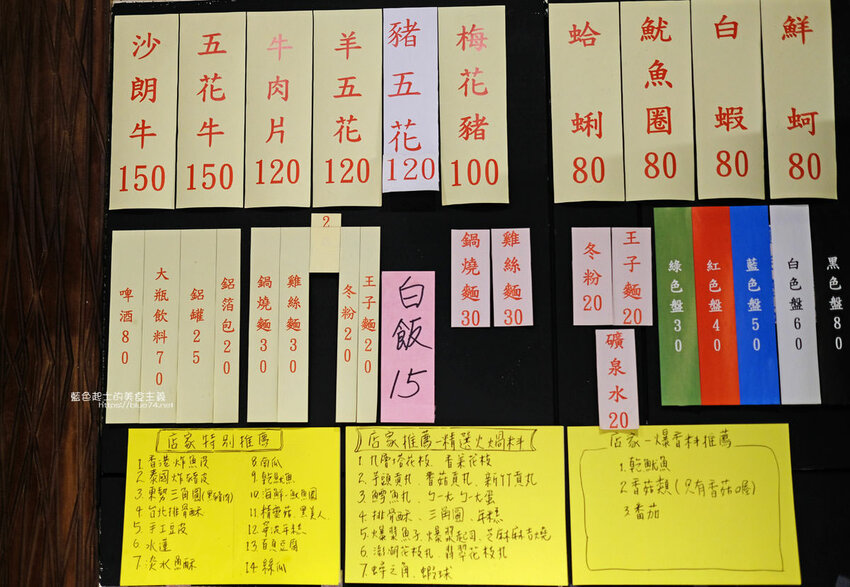 沙朗牛150
五花牛150
牛肉片120
羊五花120
豬五花120
梅花豬100
蛤蜊80
魷魚圈80
白蝦80
鮮蚵80
啤酒80
大瓶飲料70
鋁罐25
鋁箔包20
鍋燒麵30
雞絲麵30
2
冬粉20
王子麵20
白飯15
鍋燒麵30
雞絲麵30
冬粉20
王子麵20
礦泉水20
綠色盤30
紅色盤40
藍色盤50
白色盤60
黑色盤80
藍色起士的美食主義
https://blue74.net
店家特別推薦
1.香港炸魚皮
2.泰國炸豬皮
3.東勢三角圓
4.台北排骨酥
5.手工豆皮
6.水蓮
7.淡水魚酥
8.南瓜
9.乾魷魚
10.海鮮.魷魚圈
11.精靈菇.黑美人
12.寧波年糕
13.百頁豆腐
14.絲瓜
店家推薦-精選火鍋料
1.九層塔花枝、香菜花枝
2.芋頭貢丸、香菇貢丸、新竹貢丸
3.鱈魚丸、ㄅㄧㄤㄅㄧㄤ蛋
4.排骨酥、三角圓、年糕
5.爆漿魚子、爆漿起司、芝麻麻吉燒
6.澎湖花枝丸、翡翠花枝丸
7.蝦球
店家-爆香料推薦
1.乾魷魚
2.香菇類(只有香菇喔)
3.番茄